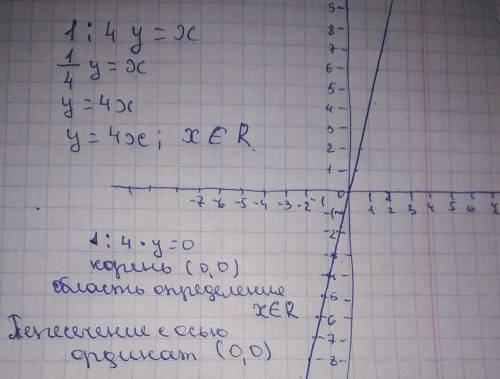 1 : 4 y = x
1/4 y = x
y = 4x
y = 4x ; x ∈ R
9
8
7
6
5
4
3
2
1
0
-7 -6 -5 -4 -3 -2 -1 1 2 3 4 5 6 7
-1
-2
-3
-4
-5
-6
-7
-8
1 : 4 · y = 0
корень (0,0)
область определение
x ∈ R
Пересечение с осью
ординат (0,0)